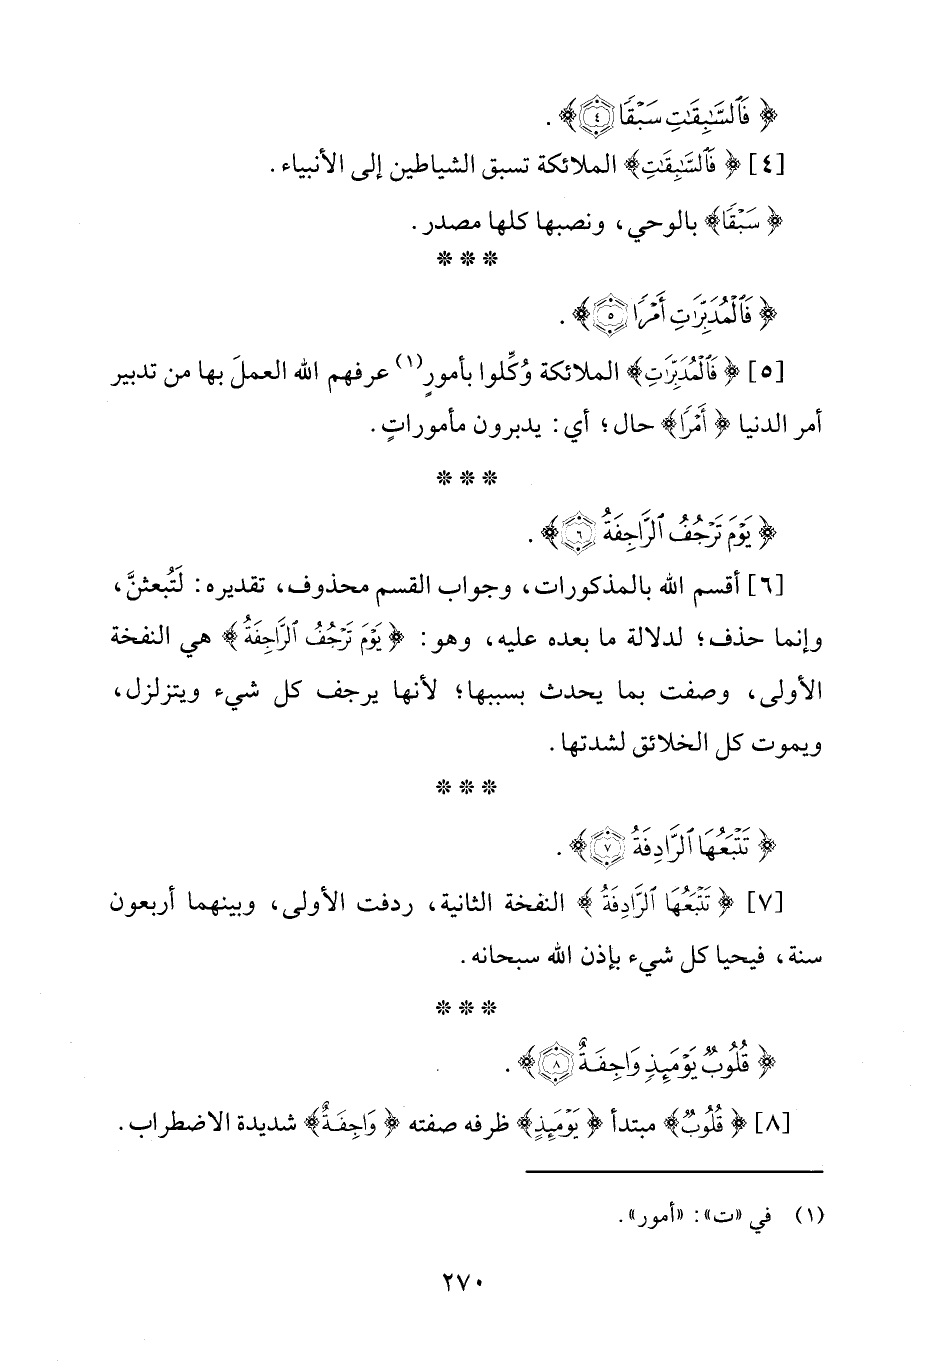 ﴿ فَٱلسَّٰبِقَٰتِ سَبۡقٗا ٤ ﴾ .
[٤] ﴿ فَٱلسَّٰبِقَٰتِ﴾ الملائكة تسبق الشياطين إلى الأنبياء .
﴿ سَبۡقٗا﴾ بالوحي، ونصبها كلها مصدر .
* * *
﴿ فَٱلۡمُدَبِّرَٰتِ أَمۡرٗا ٥ ﴾ .
[٥] ﴿ فَٱلۡمُدَبِّرَٰتِ﴾ الملائكة وُكِّلوا بأمورٍ(١) عرفهم الله العملَ بها من تدبير
أمر الدنيا ﴿ أَمۡرٗا﴾ حال؛ أي: يدبرون مأموراتٍ .
* * *
﴿ يَوۡمَ تَرۡجُفُ ٱلرَّاجِفَةُ ٦ ﴾ .
[٦] أقسم الله بالمذكورات، وجواب القسم محذوف، تقديره: لَتُبعثنَّ،
وإنما حذف؛ لدلالة ما بعده عليه، وهو: ﴿ يَوۡمَ تَرۡجُفُ ٱلرَّاجِفَةُ ﴾ هي النفخة
الأولى، وصفت بما يحدث بسببها؛ لأنها يرجف كل شيء ويتزلزل،
ويموت كل الخلائق لشدتها .
* * *
﴿ تَتۡبَعُهَا ٱلرَّادِفَةُ ٧ ﴾ .
[٧] ﴿ تَتۡبَعُهَا ٱلرَّادِفَةُ ﴾ النفخة الثانية، ردفت الأولى، وبينهما أربعون
سنة، فيحيا كل شيء بإذن الله سبحانه .
* * *
﴿ قُلُوبٞ يَوۡمَئِذٖ وَاجِفَةٌ ٨ ﴾ .
[٨] ﴿ قُلُوبٞ﴾ مبتدأ ﴿ يَوۡمَئِذٖ﴾ ظرفه صفته ﴿ وَاجِفَةٌ﴾ شديدة الاضطراب .
(١) في «ت»: «أمور» .
٢٧٠